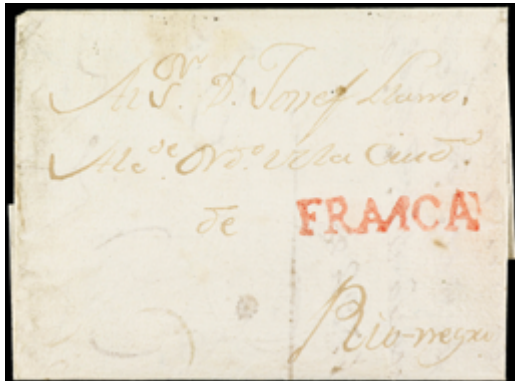 Al Sor. D. Josef Llano,
Alcde. Ordo. de la Ciud.
de FRANCA
Rio-negro